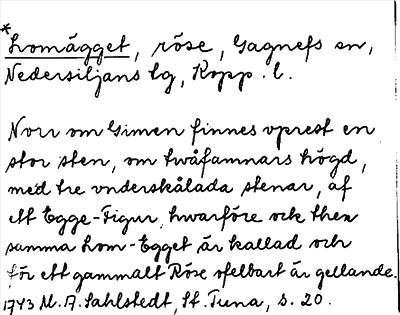 *Lomägget, röse, Gagnefs sn,
Nedersiljans tg, Kopp. l.
Norr om Gimen finnes vprest en
stor sten, om twåfamnars högd,
med tre vnderskålada stenar, af
ett Egge-Figur, hwarföre ock then
samma Lom-Egget är kallad och
för ett gammalt Röse ofelbart är gellande.
1743 M. A. Sahlstedt, St. Tuna, s. 20.